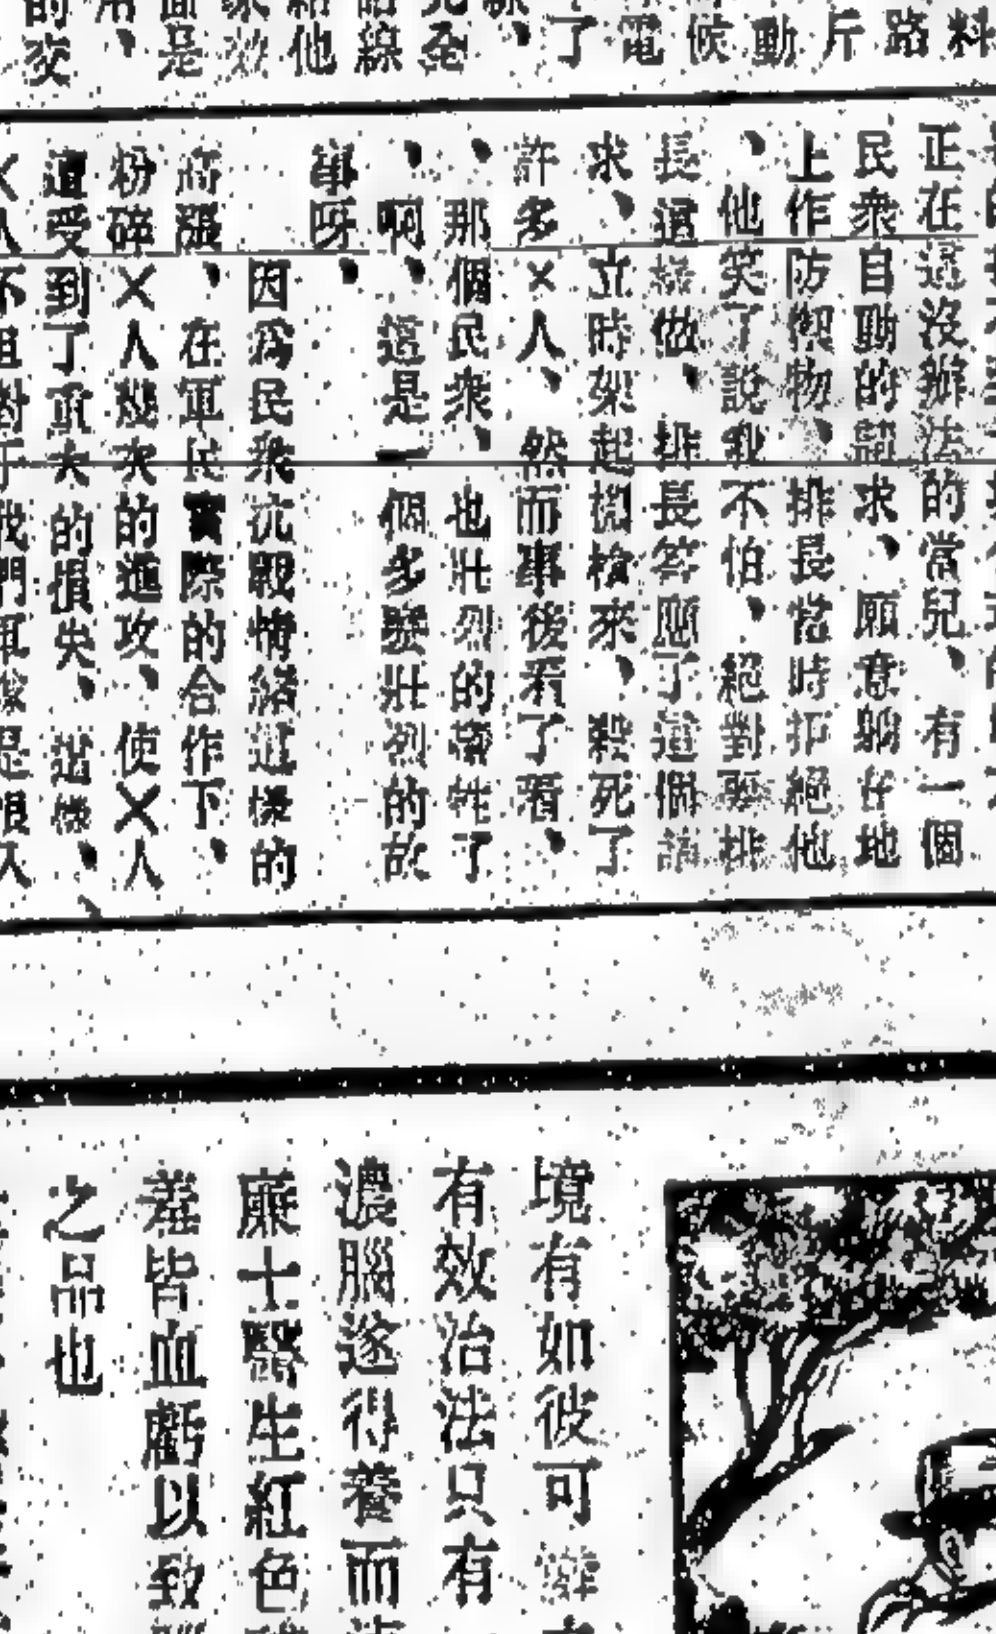 料
路
斤
動
候
電
了
線、
完全
話線
給他
家效
面是
用、
的交
正在這沒辦法的當兒、有一個
民衆自動的請求、願意躺在地
上作防禦物、排長當時拒絕他
、他笑了說我不怕、絕對要排
長這樣做、排長答應了這個請
求、、立時架起機槍來、殺死了
許多×人、然而事後看了看、
、那個民衆、也壯烈的犧牲了
、啊、這是一個多麼壯烈的故
事呀、
因爲民衆抗戰情緒這樣的
高漲、在軍民實際的合作下、
粉碎×人幾次的進攻、使×人
遭受到了重大的損失、這樣、
×人不但對于我們軍隊是恨入
境有如彼可
有效治法只有
濃腦遂得養而
廉士醫生紅色
羞皆血虧以致
之品也